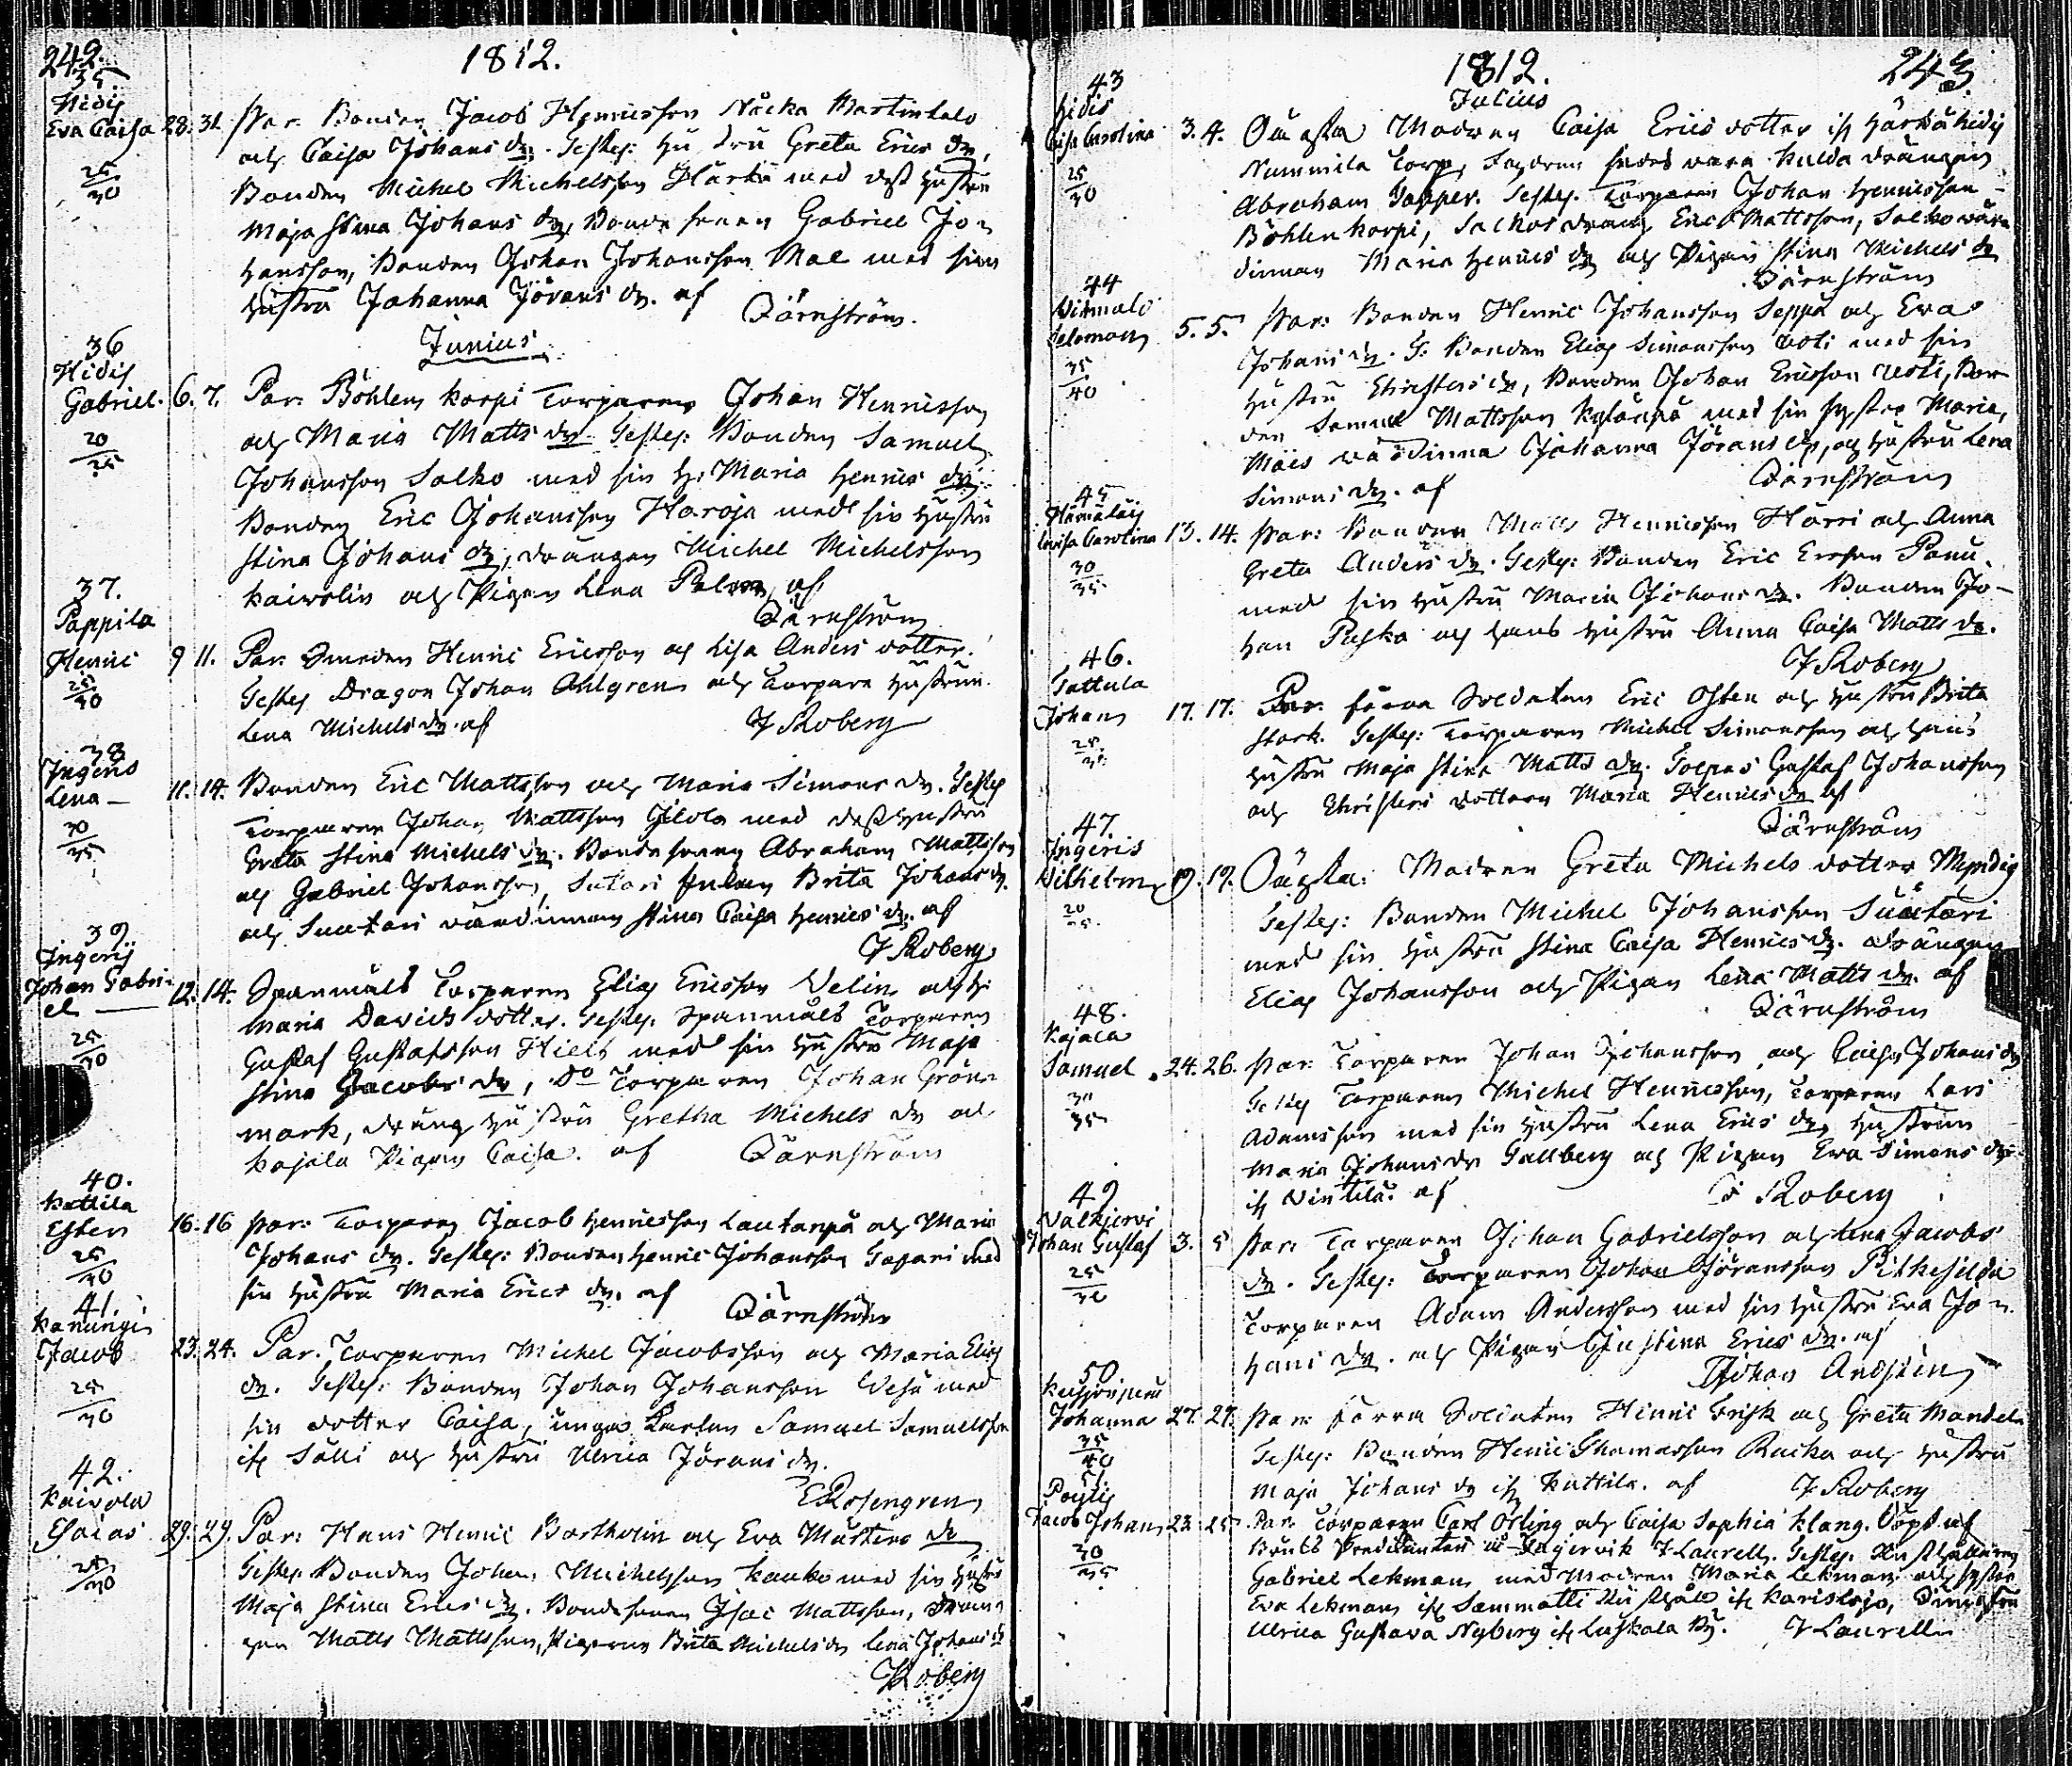 242.
1812.
35.
Hidis
Eva Caisa 28. 31. Par. Bonden Jacob Henricsson Nåcka Martinkalo
25/30 och Caisa Johans dr. Testes: Hustru Greta Erics dr,
Bonden Michel Michelsson Härkä med dess hustru
Maja Stina Johans dr, Bonde sonen Gabriel Jo-
hansson, Bonden Johan Johansson Mal med sin
hustru Johanna Jörans dr. af Bärnström.
Junius
36
Hidis
Gabriel. 6. 7. Par. Böhlen korpi Torparen Johan Henricsson
20/25 och Maria Matts dr Testes: Bonden Samuel
Johansson Salko med sin H. Maria Henrics dr
Bonden Eric Johansson Haroja med sin hustru
Stina Johans dr, drängen Michel Michelsson
Kaivolin och Pigan Lena af
Bärnström
37.
Pappila
Henric 9 11. Par. Smeden Henric Ericsson och Lisa Anders dotter.
25/30 Testes Dragon Johan Ahlgren och Torpare hustrun
Lena Michels dr. af J Roberg
38
Ingeris
Lena — 11. 14. Bonden Eric Mattsson och Maria Simons dr. Testes
30/35 Torparen Johan Mattsson Jilola med dess hustru
Greta Stina Michels dr. Bonde sonen Abraham Mattsson
och Gabriel Johansson, Sutari Enkan Brita Johans dr.
och Suutari värdinnan Stina Caisa Henrics dr. af
J Roberg
39.
Ingeris
Johan Gabri-
el — 12. 14. Spanmåls Torparen Elias Ericsson Velin och H.
25/30 Maria Davids dotter. Testes. Spanmåls Torparen
Gustaf Gustafsson Hielt med sin hustru Maja
Stina Jacobs dr, Do Torparen Johan Grön-
mark, dräng hustru Gretha Michels dr och
Kajala Pigan Caisa. af Bärnström
40.
Kattila
Ester 16. 16 Par: Torparen Jacob Henricsson Lautanpä och Maria
25/30 Johans dr. Testes: Bonden Henric Johansson Tapani med
sin hustru Maria Erics dr. af
Bärnström
41.
Kanungi
Jacob 23. 24. Par. Torparen Michel Jacobsson och Maria Elias
25/30 dr. Testes: Bonden Johan Johansson Vesu med
sin dotter Caisa, unga Samuel Samuelsson
ifr Sälli och hustru Ulrica Jörans dr.
E Rosengren
42.
Kaivola
Esaias 29. 29. Par: Hans Henric Bartholin och Eva Mårtens dr
25/30 Testes. Bonden Johan Michelsson Kauko med sin hustru
Maja Stina Erics dr. Bonde sonen Isac Mattsson, Drän-
gen Matts Mattsson, Pigorna Brita Michels dr Lena Johans dr
J Roberg
1812.
243
Julius
43
Hidis
Caisa Carolina 3. 4. Oäkta Modren Caisa Erics dotter ifr Härkä hidis
25/30 Nummila Torp, Fadren vara Kulda drängen
Abraham Tapper. Testes. Torparen Johan Henricsson
Böhlen korpi, Salkos dräng Eric Mattsson, Salko värd
dinnan Maria Henrics dr och Pigan Stina Michels dr
Bärnström
44
Solomon 5. 5. Par: Bonden Henric Johansson Seppä och Eva
35/40 Johans dr. T: Bonden Elias Simonsson Uoti med sin
hustru Christers dr, Bonden Johan Ericsson Uoti, Bon
den Samuel Mattsson med sin syster Maria,
Mäis värdinna Johanna Jörans dr, och hustru Lena
Simons dr. af Bärnström
45
Hämälais
Lovisa Carolina 13. 14. Par: Bonden Matts Henricsson Härri och Anna
30/35 Greta Anders dr. Testes: Bonden Eric Ersson Panu
med sin hustru Maria Johans dr. Bonden Jo-
han Puska och hans hustru Anna Caisa Matts dr.
J Roberg
46.
Tattula
Johan 17. 17. Par. förra Soldaten Eric Osten och hustru Brita
25/30 Stark. Testes: Torparen Michel Simonsson och hans
hustru Maja Stina Matts dr. Gustaf Johansson
och Christers dottren Maria Henrics dr af
Bärnström
47.
Ingeris
Wilhelm 19. 19. Oäkta: Modren Greta Michels dotter Myndig
20/25 Testes: Bonden Michel Johansson Suutari
med sin hustru Stina Caisa Henrics dr. drängen
Elias Johansson och Pigan Lena Matts dr. af
Bärnström
48.
Kajala
Samuel 24. 26. Par. Torparen Johan Johansson och Caisa Johans dr
30/35 Testes Torparen Michel Henricsson, Torparen Lars
Adamsson med sin hustru Lena Erics dr, hustrun
Maria Johans dr Tallberg och Pigan Eva Simons dr
ifr Vintila. af J Roberg
49
Valkjervi
Johan Gustaf 3. 5 Par: Torparen Johan Gabrielsson och Lena Jacobs
25/30 dr. Testes: Torparen Johan Jöransson Pitkesilda
Torparen Adam Andersson med sin hustru Eva Jo-
hans dr. och Pigan Justina Erics dr. af
Johan Andstén
50
Johanna 27. 27. Par: förra Soldaten Henric Frisk och Greta Mandel
35/40 Testes: Bonden Henric Thomasson Racka och hustru
Maja Johans dr ifr Kattila. af J Roberg
51.
Pöylis
Jacob Johan 23. 25. Par. Torparen Carl Örling och Caisa Sophia Klang. Döpt af
30/35 Bruks Predikanten å Fagervik J Laurell. Testes. Hushållaren
Gabriel Lekman med Modren Maria Lekman och syster
Eva Lekman ifr Sammatti ifr Karislojo,
Ulrica Gustava Nyberg ifr Luskala By. J Laurell